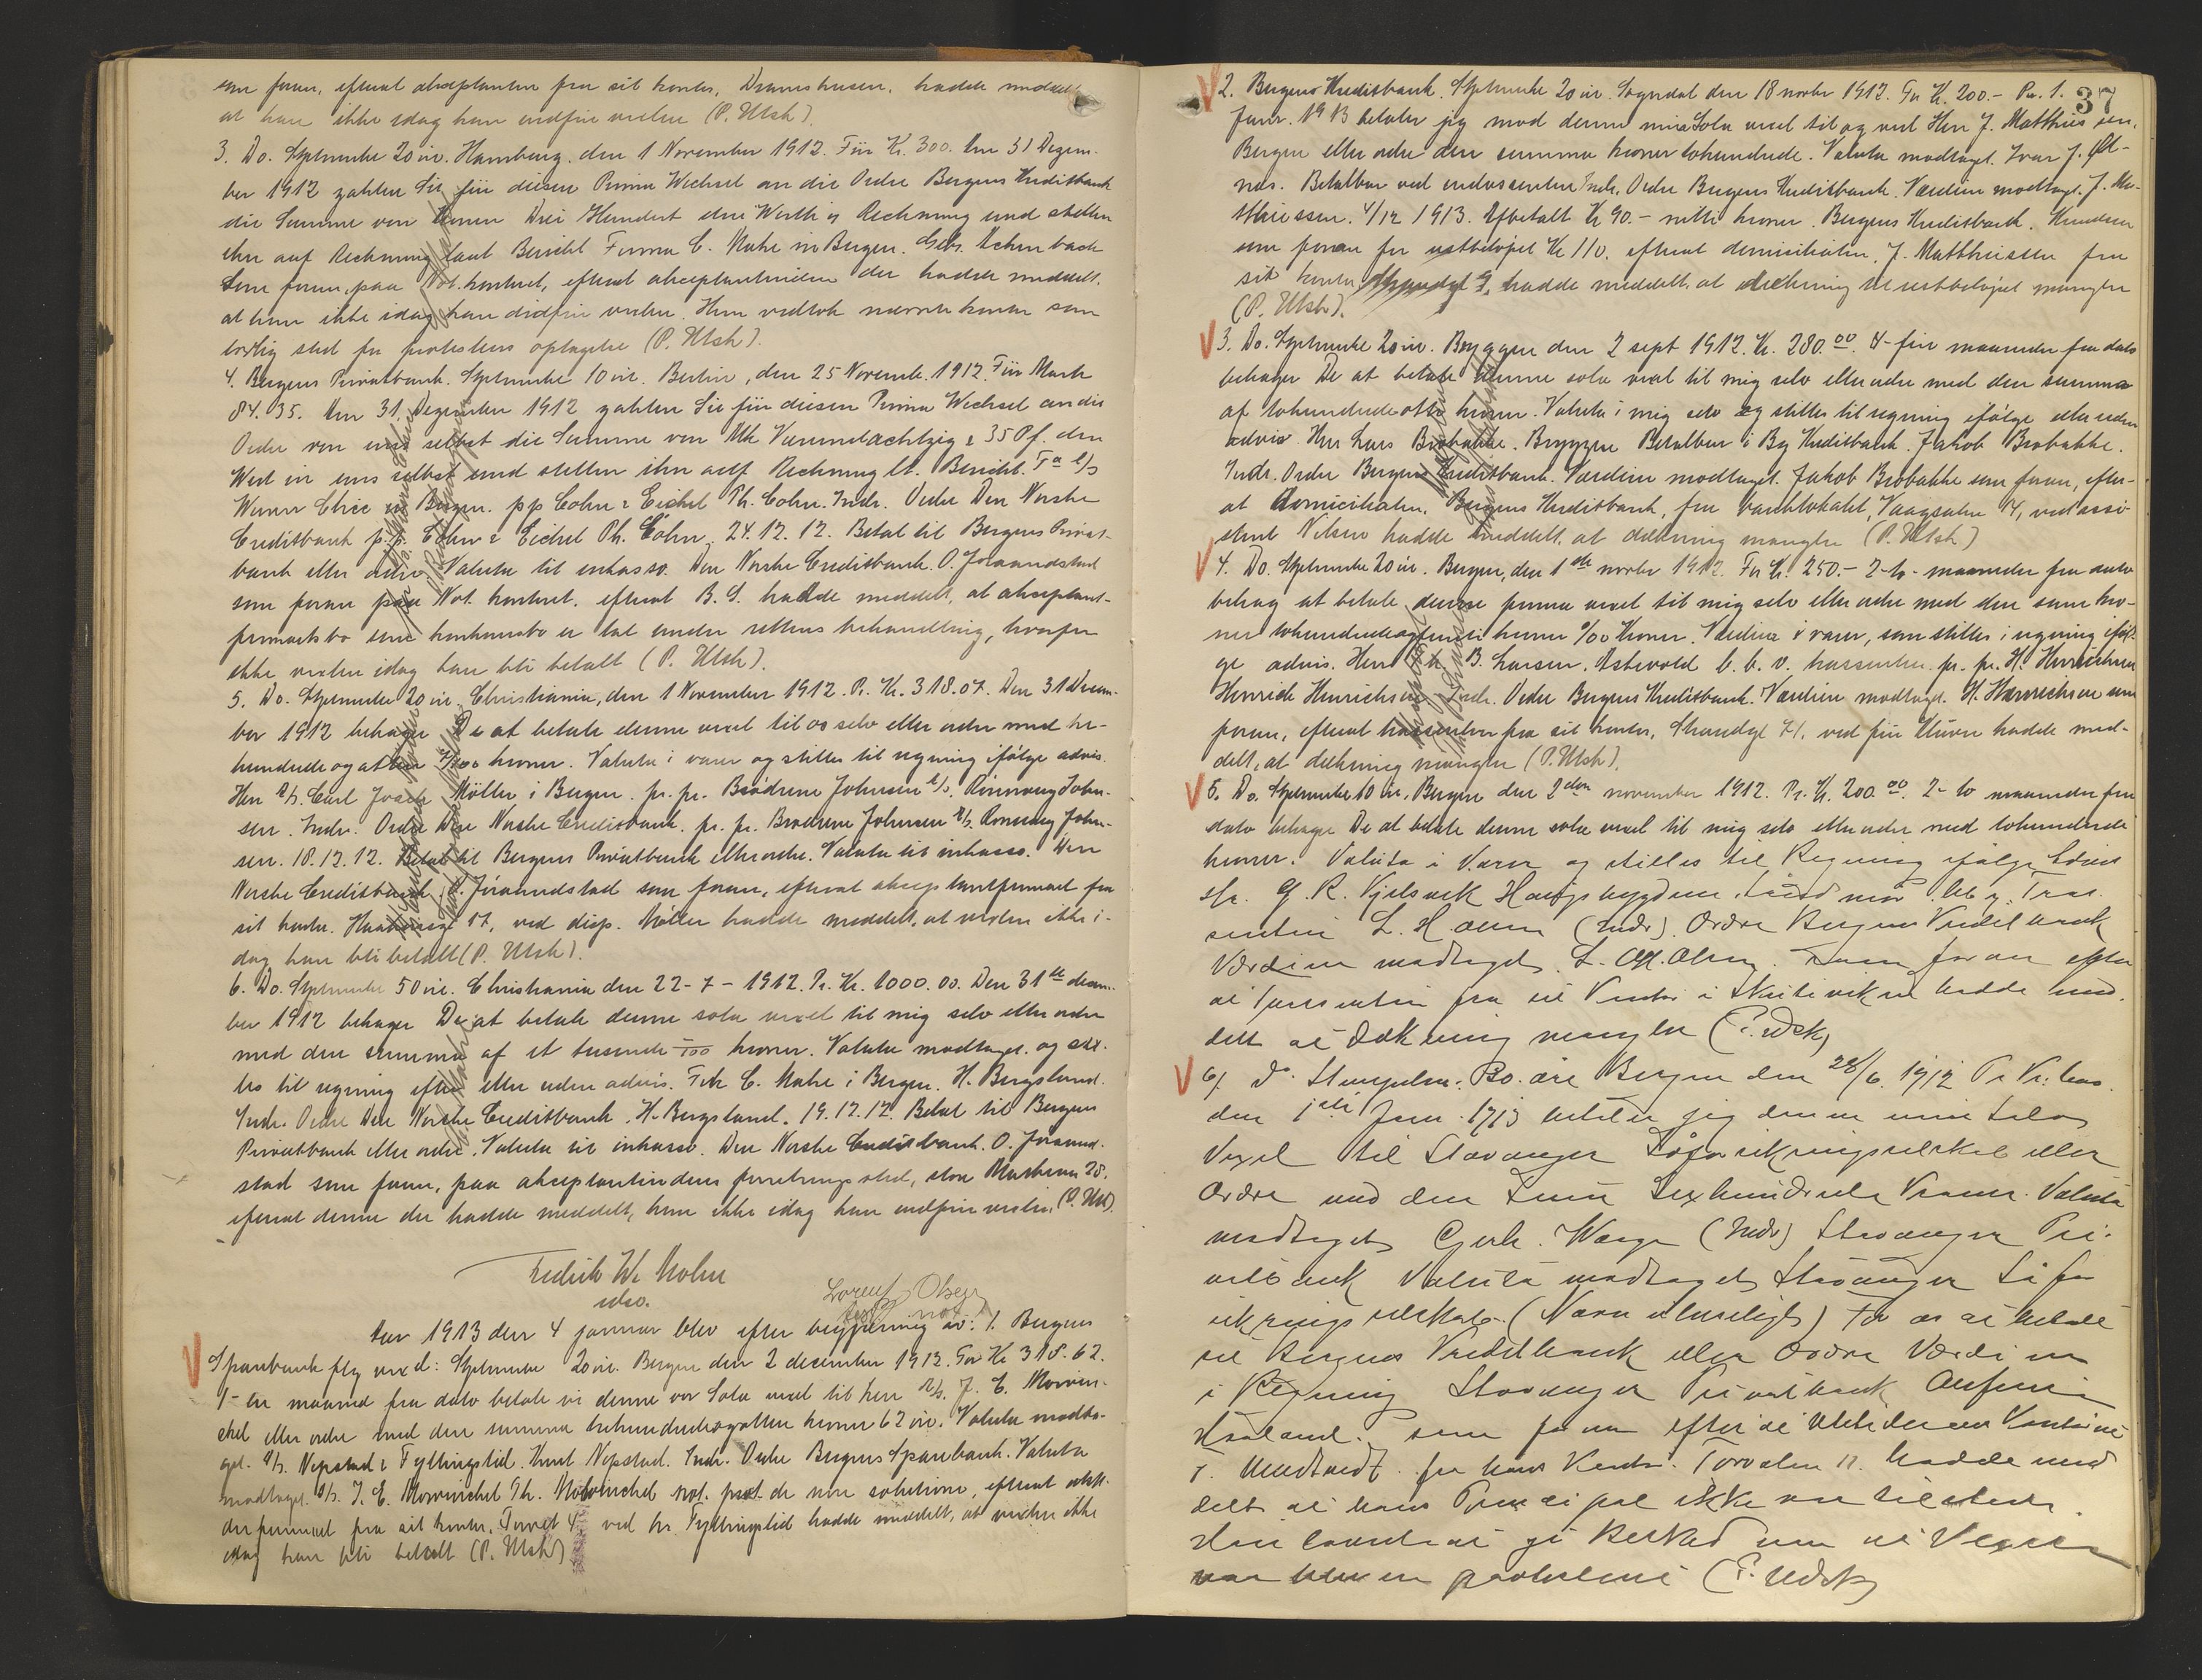 som foran, efterat akseptanten fra sit kontor, Dramshusen, hadde meddelt
at han ikke idag kan indfri vexlen (P. Utsk).
3. Do. Stpl.merke 20 øre. Hamburg, den 1 November 1912. Für Kr. 300. Am 31 Dezem-
ber 1912 zahlen Sie für diesen Prima Wechsel an die Ordre Bergens Kreditbank
die Summe von Kronen Drei Hundert den Werth in Rechnung und stellen
ihn auf Rechnung laut Bericht Firma C. Mohr in Bergen. Gebr.
som foran, paa Not. kontoret, efterat akseptantinden der hadde meddelt,
at hun ikke idag kan indfri vexlen. Hun vedtok nævnte kontor som
lovlig sted for protestens optagelse (P. Utsk).
4. Bergens Privatbank. Stpl.merke 10 øre. Berlin, den 25 Novemb. 1912. Für Mark
84.35. Am 31. Dezember 1912 zahlen Sie für diesen Prima Wechsel an die
Order von uns selbst die Summe von Mk Vierundachtzig & 35 Pf. den
Wert in uns selbst und stellen ihn auf Rechnung lt. Bericht. Fa A/S
Werner in Bergen. pp Cohn & Eichel Ph. Cohn. Indr. Ordre Den Norske
Creditbank p.p. Cohn & Eichel Ph. Cohn. 24.12.12. Betal til Bergens Privat-
bank eller ordre. Valuta til inkasso. Den Norske Creditbank. O. Jørandstad
som foran paa Not. kontoret, efterat B. S. hadde meddelt, at akseptant-
firmaets bo som konkursbo er tat under rettens behandling, hvorfor
ikke vexlen idag kan bli betalt (P. Utsk).
5. Do. Stpl.merke 20 øre. Christiania, den 1 November 1912. Pr. Kr. 318.07. Den 31 Decem-
ber 1912 behager De at betale denne vexel til os selv eller ordre med tre-
hundrede og atten 7/100 kroner. Valuta i varer og stilles til regning ifølge advis.
Herr A/S. Carl Joach Møller i Bergen. pr. pr. Brødrene Johnsen A/S. Rønnaug John-
sen. Indr. Ordre Den Norske Creditbank. pr. pr. Brødrene Johnsen A/S. Rønnaug John-
sen. 18.12.12. Betal til Bergens Privatbank eller ordre. Valuta til inkasso. Den
Norske Creditbank. O. Jørandstad som foran, efterat akseptantfirmaet fra
sit kontor, 17, ved disp. Møller hadde meddelt, at vexlen ikke i-
dag kan bli betalt (P. Utsk).
6. Do. Stpl.merke 50 øre. Christiania den 22-7-1912. Pr. Kr. 1000.00. Den 31te decem-
ber 1912 behager De at betale denne sola vexel til mig selv eller ordre
med den summa af et tusende /100 kroner. Valuta modtaget og stil-
les til regning efter eller uden advis. Frk C. Mohr i Bergen. H. Bergsland.
Indr. Ordre Den Norske Creditbank. H. Bergsland. 19.12.12. Betal til Bergens
Privatbank eller ordre. Valuta til inkasso. Den Norske Creditbank. O. Jørand-
stad som foran, paa akseptantindens forretningssted, store Markevei 28.
efterat denne der hadde meddelt, hun ikke idag kan indfri vexlen. (P. Utsk).
Fredrik W. Mohn
edsv.
Lorentz Olsen
Aar 1913 den 4 januar blev efter begjæring av: 1. Bergens
Sparebank flg vexel: Stpl.merke 20 øre. Bergen den 2 december 1912. For Kr 318.62.
1- en maaned fra dato betale vi denne vor Sola vexel til herr A/S. J. E. Mowin-
ckel eller ordre med den summa trehundredeogatten kroner 62 øre. Valuta modta-
get. A/S. Nepstad & Fyllingslid. Knut Nepstad. Indr. Ordre Bergens Sparebank. Valuta
modtaget. A/S. J. E. Mowinckel Th. Mowinckel not. prot. de non solutione, efterat utste-
derfirmaet fra sit kontor, Torvet 4 ved hr. Fyllingslid hadde meddelt, at vexlen ikke
idag kan bli betalt (P. Utsk)
37
2. Bergens Kreditbank. Stpl.merke 20 øre. Sogndal den 18 novbr 1912. For Kr. 200.- Pr. 1.
Janr. 1913 betaler jeg mod denne min Sola vexel til og ved Herr J. Matthies sen,
Bergen eller ordre den summa kroner tohundrede. Valuta modtaget. Ivar J. Øl-
nes. Betalbar ved endossenten. Indr. Ordre Bergens Kreditbank. Værdien modtaget. J. Ma-
thiessen. 4/12 1913. Afbetalt Kr 90.- nitti kroner. Bergens Kreditbank. Knudsen
som foran for restbeløpet Kr 110, efterat domiciliaten, J. Matthiessen fra
sit kontor, hadde meddelt, at dækning til restbeløpet mangler
(P. Utsk).
3. Do. Stpl.merke 20 øre. Bryggen den 2 sept 1912. Kr. 280.00. 4- fire maaneder fra dato
behager De at betale denne sola vexel til mig selv eller ordre med den summa
af tohundredeotti kroner. Valuta i mig selv og stilles til regning ifølge eller uden
advis. Herr Lars Brobakke. Bryggen. Betalbar i Bg Kreditbank. Jakob Brobakke.
Indr. Ordre Bergens Kreditbank. Værdien modtaget. Jakob Brobakke som foran, efter-
at domiciliaten, Bergens Kreditbank, fra banklokalet, Vaagsalm. 4, ved assi-
stent Nilsen hadde meddelt, at dækning mangler (P. Utsk)
4. Do. Stpl.merke 20 øre. Bergen, den 1ste novbr 1912. For Kr. 250.- 2- to- maaneder fra dato
behag at betale denne prima vexel til mig selv eller ordre med den sum kro-
ner tohundredeogfemti kroner 0/00 Kroner. Værdien i varer, som stilles i regning iføl-
ge advis. Herr B. Larsen, Askevold b. b. v. trassenten. pr. pr. H. Henrichsen
Henrik Henrichsen. Indr. Ordre Bergens Kreditbank. Værdien modtaget. H. Henrichsen som
foran, efterat trassenten fra sit kontor, Strandgt 71, ved frk hadde med-
delt, at dækning mangler (P. Utsk).
5. Do. Stpl.merke 10 øre. Bergen den 2den november 1912. Pr. Kr. 200.00. 2- to maaneder fra
dato behager De at betale denne sola vexel til mig selv eller ordre med tohundrede
kroner. Valuta i Varer og stilles til Regning ifølge Advis
Hr. G. R. Hjelvik betb. Tras-
senten L. H. Olsen (Indr) Ordre Bergens Kreditbank
Værdien modtaget L. Olsen. Som foran efter
at Trassenten fra sit Kontor i Skuteviken hadde med-
delt at Dækning mangler (P. Udsk)
6. Do. Stempelm. 30 øre Bergen den 28/6 1912 Pr Kr. 600.
den 1ste Janr 1913 betaler jeg denne min Sola
Vexel til Stavanger Søforsikringsselskab eller
Ordre med den Sum Sexhundrede Kroner. Valuta
modtaget Gerh. Waage (Indr) Stavanger Pri-
vatbank Valuta modtaget Stavanger Søfor
sikringsselskab. (Navn ulæseligt) For os at betale
til Bergens Kreditbank eller Ordre Værdien
i Regning Stavanger Privatbank
Haaland. som foran efter at Utstederens Kontorist
T. fra hans Kontor. Torvalm 11. hadde med
delt at hans Principal ikke var tilstede
Han lovede at gi Besked om at Vexlen
var bleven protesteret (P. Udsk)